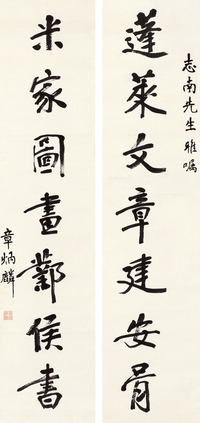 志南先生雅嘱
蓬萊文章建安骨
米家圖畫鄴侯書
章炳麟